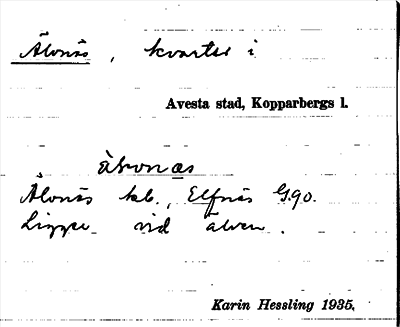 Älvnäs, kvarter i
Avesta stad, Kopparbergs l.
älvnæs
Älvnäs kb., Elfnäs G.90.
Ligger vid älven.
Karin Hessling 1935.